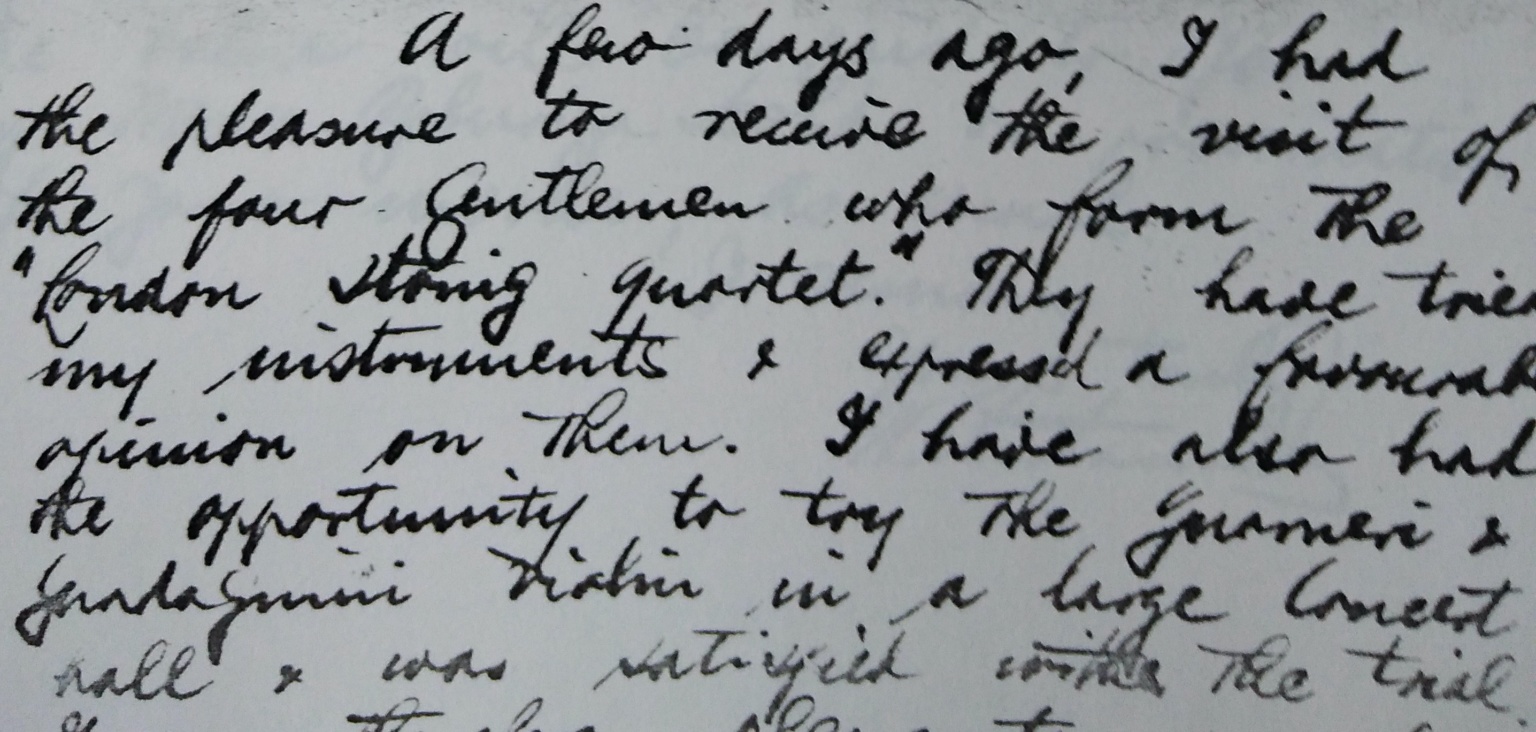 A few days ago, I had
the pleasure to receive the visit of
the four Gentlemen who form the
"London String quartet." They have
my instruments & expressed a
opinion on them. I have also had
the opportunity to try the Guarneri &
Guadagnini Violin in a large Concert
hall & was satisfied with the trial.